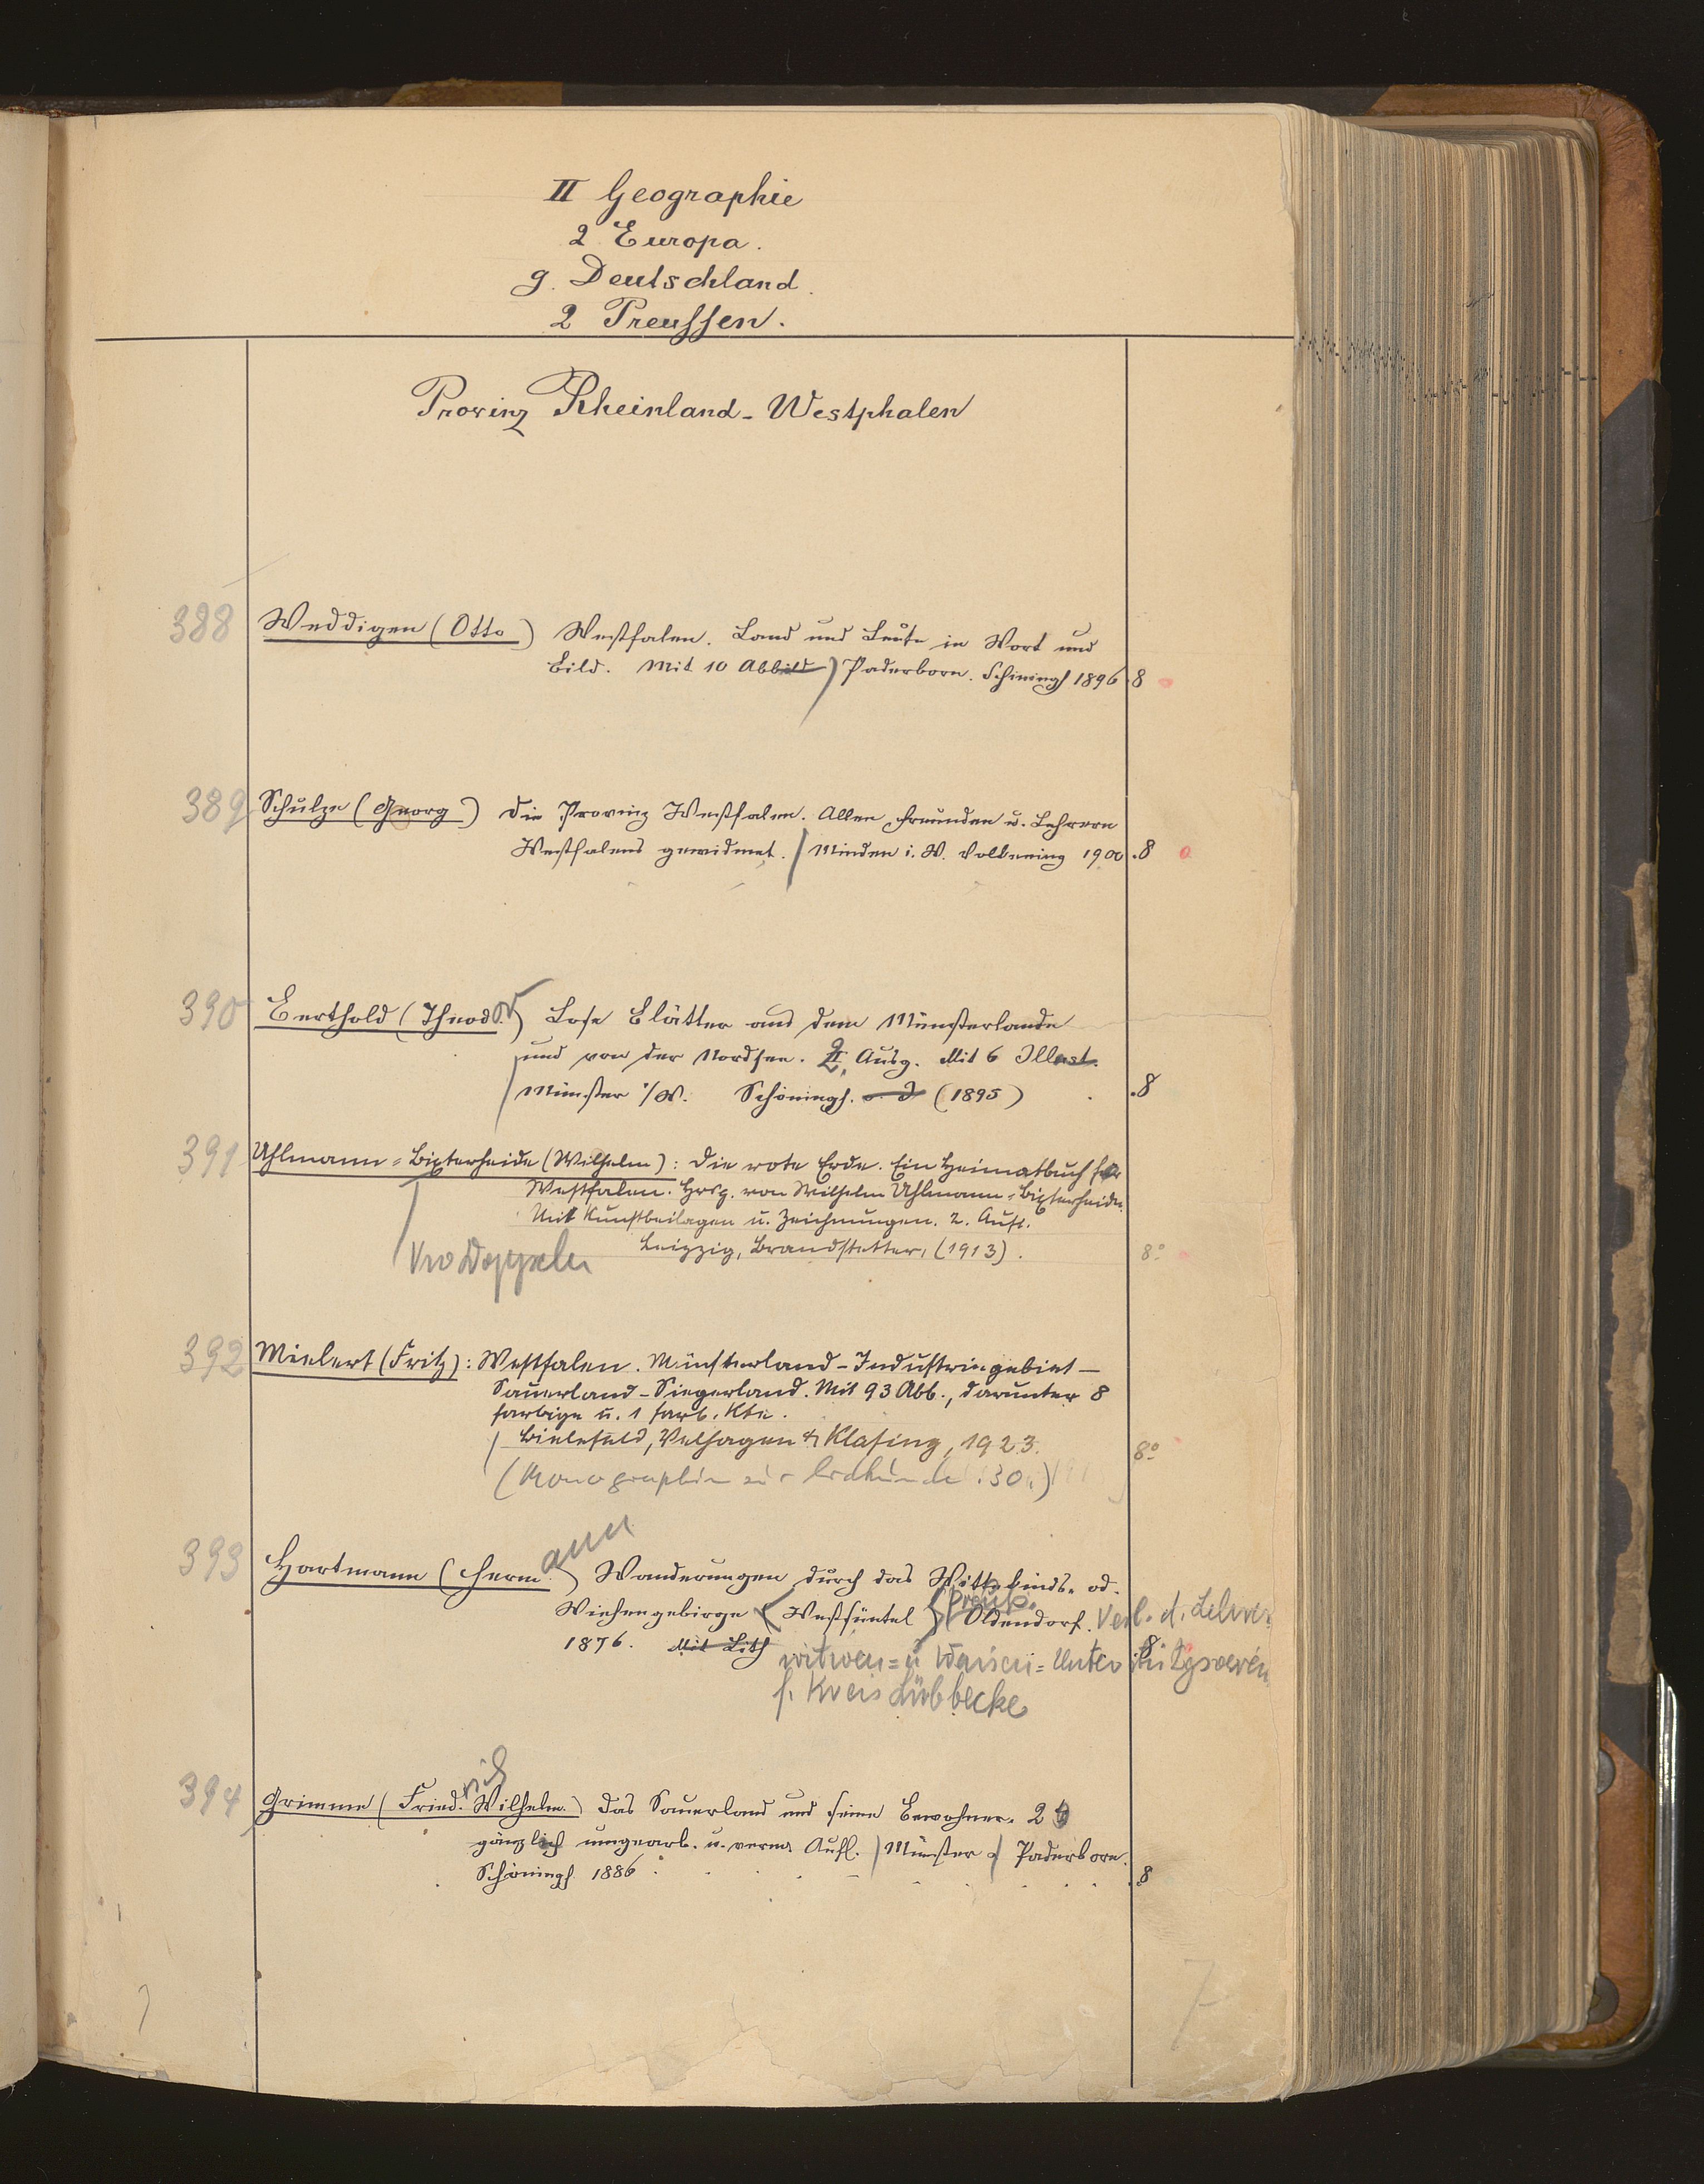 II Geographie
2 Europa.
g. Deutschland.
2 Preussen.
Provinz Rheinland-Westphalen
388 Weddigen (Otto) Westfalen. Land und Leute in Wort und
Bild. Mit 10 Abbild) Paderborn. Schöningh 1896 .8
389 Schulze (Georg) Die Provinz Westfalen. Allen Freunden u. Lehrern
Westfalens gewidmet. / Minden i. W. Volkening 1900 .8
390 Berthold (Theodor) Lose Blätter aus dem Münsterlande
und von der Nordsee. 2. Ausg. Mit 6 Illust.
Münster i/W. Schöningh. o. J (1895) .8
391 Uhlmann=Bixterheide (Wilhelm): Die rote Erde. Ein Heimatbuch für
Westfalen. Hrsg. von Wilhelm Uhlmann=Bixterheide.
Mit Kunstbeilagen u. Zeichnungen. 2. Aufl.
Leipzig, Brandstetter, (1913). 8°
392 Mielert (Fritz): Westfalen. Münsterland-Industriegebiet-
Sauerland-Siegerland. Mit 93 Abb., darunter 8
farbige u. 1 farb. Kte.
Bielefeld, Velhagen & Klasing, 1923. 8°
(Monographien zur Erdkunde. 30.)
393 Hartmann (Hermann) Wanderungen durch das Wittekinds- od.
Wiehengebirge (Westsüntel) Preuß. Oldendorf. Verl. d. Lehrer=
1876. Mit Lith witwen= u Waisen=Unterstützgsverein 8
f. Kreis Lübbecke
394 Grimme (Friedrich Wilhelm.) Das Sauerland und seine Bewohner. 2
gänzlich umgearb. u. verm. Aufl. / Münster / Paderborn.
Schöningh 1886 .8
7